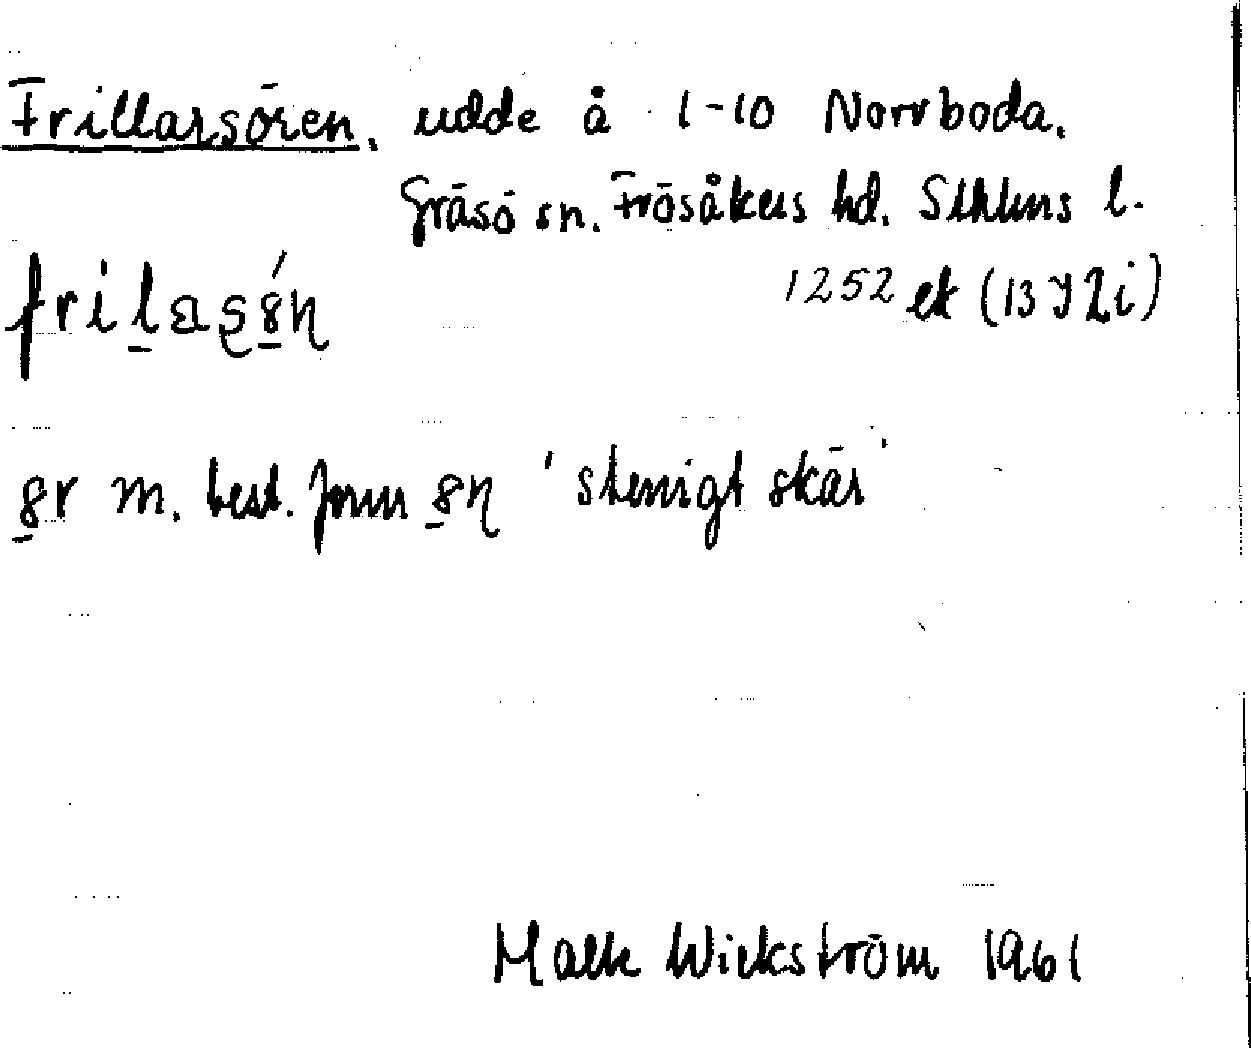 Frillarsören, udde å 1-10 Norrboda.
Gräsö sn. Frösåkers hd. Sthlms l.
1252 ek (13 I 2i)
frilasö́n
ör m. best. form ön 'stenigt skär'
Wickström 1961